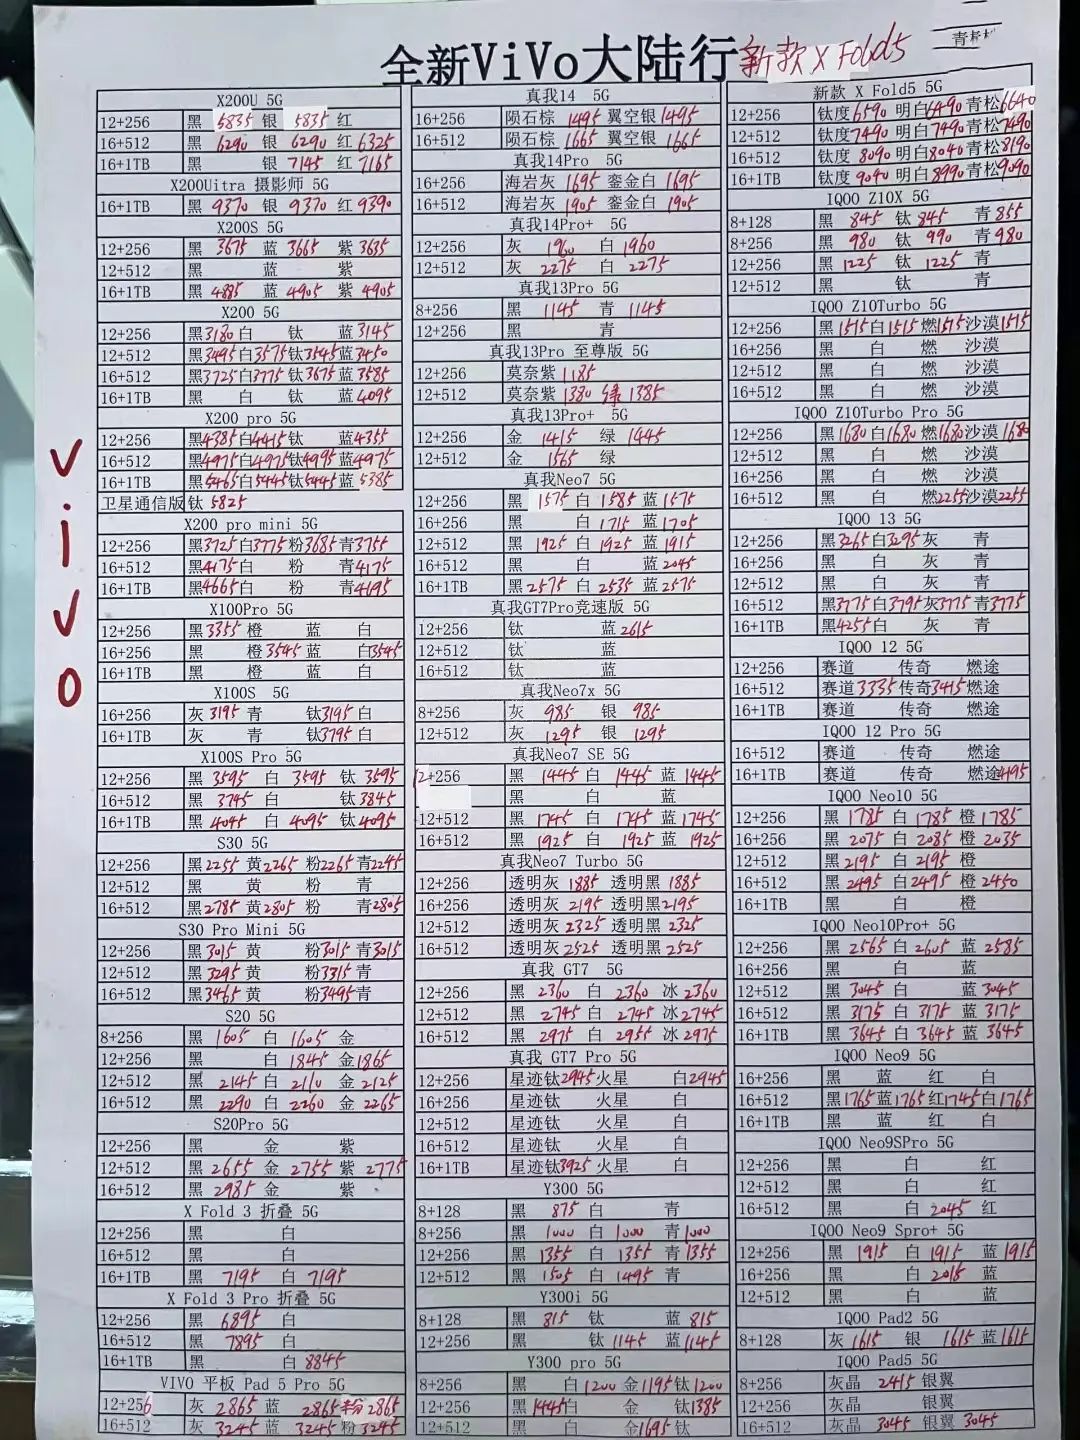 全新ViVo大陆行 新款 X Fold5
青松
vivo
X200U 5G
12+256 黑 5835 银 5835 红
16+512 黑 6290 银 6290 红 6325
16+1TB 黑 银 7145 红 7165
X200Uitra 摄影师 5G
16+1TB 黑 9370 银 9370 红 9390
X200S 5G
12+256 黑 3675 蓝 3665 紫 3635
12+512 黑 蓝 紫
16+1TB 黑 4885 蓝 4905 紫 4905
X200 5G
12+256 黑3180白 钛 蓝3145
12+512 黑3495白3575钛3545蓝3450
16+512 黑3725白3775钛3675蓝3585
16+1TB 黑 白 钛 蓝4095
X200 pro 5G
12+256 黑4385白4415钛 蓝4355
16+512 黑4975白4975钛4995蓝4975
16+1TB 黑5465白5445钛5445蓝 5385
卫星通信版 钛 5825
X200 pro mini 5G
12+256 黑3725白3775粉3685青3755
16+512 黑4175白 粉 青4175
16+1TB 黑4665白 粉 青4195
X100Pro 5G
12+256 黑3355橙 蓝 白
16+256 黑 橙3545蓝 白3545
16+1TB 黑 橙 蓝 白
X100S 5G
16+256 灰 3195 青 钛3195 白
16+1TB 灰 青 钛3795 白
X100S Pro 5G
12+256 黑 3595 白 3595 钛 3595
16+512 黑 3745 白 钛 3845
16+1TB 黑 4045 白 4095 钛 4095
S30 5G
12+256 黑2255 黄2265 粉2265青2245
12+512 黑 黄 粉 青
16+512 黑2785 黄2805 粉 青2805
S30 Pro Mini 5G
12+256 黑 3015 黄 粉3015青3015
12+512 黑 3295 黄 粉3315青
16+512 黑 3465 黄 粉3495青
S20 5G
8+256 黑 1605 白 1605 金
12+256 黑 白 1845 金1865
12+512 黑 2145 白 2110 金 2125
16+512 黑 2290 白 2260 金 2265
S20Pro 5G
12+256 黑 金 紫
12+512 黑 2655 金 2755 紫 2775
16+512 黑 2985 金 紫
X Fold 3 折叠 5G
12+256 黑 白
16+512 黑 白
16+1TB 黑 7195 白 7195
X Fold 3 Pro 折叠 5G
12+256 黑 6895 白
16+512 黑 7895 白
16+1TB 黑 白 8845
VIVO 平板 Pad 5 Pro 5G
12+256 灰 2865 蓝 2865 粉 2865
16+512 灰 3245 蓝 3245 粉 3245
真我14 5G
16+256 陨石棕 1495 翼空银 1495
12+256 陨石棕 1665 翼空银 1665
真我14Pro 5G
16+256 海岩灰 1695 銮金白 1695
16+512 海岩灰 1905 銮金白 1905
真我14Pro+ 5G
12+256 灰 1960 白 1960
12+512 灰 2275 白 2275
真我13Pro 5G
8+256 黑 1145 青 1145
12+256 黑 青
真我13Pro 至尊版 5G
12+256 莫奈紫 1185
16+512 莫奈紫 1380 绿 1385
真我13Pro+ 5G
12+256 金 1415 绿 1445
12+512 金 1565 绿
真我Neo7 5G
12+256 黑 1575 白 1585 蓝 1575
16+256 黑 白 1715 蓝 1705
12+512 黑 1925 白 1925 蓝 1915
16+512 黑 白 蓝 2045
16+1TB 黑 2575 白 2535 蓝 2575
真我GT7Pro竞速版 5G
12+256 钛 蓝2615
12+512 钛 蓝
16+512 钛 蓝
真我Neo7x 5G
8+256 灰 985 银 985
12+512 灰 1295 银 1295
真我Neo7 SE 5G
12+256 黑 1445 白 1445 蓝 1445
黑 白 蓝
12+512 黑 1745 白 1745 蓝 1745
16+512 黑 1925 白 1925 蓝 1925
真我Neo7 Turbo 5G
12+256 透明灰 1885 透明黑 1885
16+256 透明灰 2195 透明黑2195
12+512 透明灰 2325 透明黑 2325
16+512 透明灰 2525 透明黑 2525
真我 GT7 5G
12+256 黑 2360 白 2360 冰 2360
12+512 黑 2745 白 2745 冰 2745
16+512 黑 2975 白 2955 冰 2975
真我 GT7 Pro 5G
12+256 星迹钛2945火星 白2945
16+256 星迹钛 火星 白
12+512 星迹钛 火星 白
16+512 星迹钛 火星 白
16+1TB 星迹钛3925火星 白
Y300 5G
8+128 黑 875 白 青
8+256 黑 1000 白 1000 青1000
12+256 黑 1355 白 1355 青1355
12+512 黑 1505 白 1495 青
Y300i 5G
8+128 黑 815 钛 蓝 815
12+256 黑 钛 1145 蓝1145
Y300 pro 5G
8+256 黑 白1200金1195钛1200
12+256 黑1445白 金 钛1385
12+512 黑 白 金1695钛
新款 X Fold5 5G
12+256 钛度 6590 明白6490青松6640
12+512 钛度7490 明白7490青松7490
16+512 钛度 8090 明白8040青松8190
16+1TB 钛度 9040 明白8990青松9090
IQOO Z10X 5G
8+128 黑 845 钛 845 青855
8+256 黑 980 钛 990 青980
12+256 黑 1225 钛 1225 青
12+512 黑 钛 青
IQOO Z10Turbo 5G
12+256 黑1515白1515燃1515沙漠1515
16+256 黑 白 燃 沙漠
12+512 黑 白 燃 沙漠
16+512 黑 白 燃 沙漠
IQOO Z10Turbo Pro 5G
12+256 黑1680白1680燃1680沙漠1680
12+512 黑 白 燃 沙漠
16+256 黑 白 燃 沙漠
16+512 黑 白 燃2255沙漠2255
IQOO 13 5G
12+256 黑3265白3295灰 青
16+256 黑 白 灰 青
12+512 黑 白 灰 青
16+512 黑3775白3795灰3775青3775
16+1TB 黑4255白 灰 青
IQOO 12 5G
12+256 赛道 传奇 燃途
16+512 赛道3335传奇3415燃途
16+1TB 赛道 传奇 燃途
IQOO 12 Pro 5G
16+512 赛道 传奇 燃途
16+1TB 赛道 传奇 燃途4195
IQOO Neo10 5G
12+256 黑 1785 白 1785 橙 1785
16+256 黑 2075 白 2085 橙 2035
12+512 黑 2195 白 2195 橙
16+512 黑 2495 白2495 橙 2450
16+1TB 黑 白 橙
IQOO Neo10Pro+ 5G
12+256 黑 2565 白 2605 蓝 2585
16+256 黑 白 蓝
12+512 黑 3045 白 蓝 3045
16+512 黑 3175 白 3175 蓝 3175
16+1TB 黑 3645 白 3645 蓝 3645
IQOO Neo9 5G
16+256 黑 蓝 红 白
16+512 黑1765蓝1765红1745白1765
16+1TB 黑 蓝 红 白
IQOO Neo9SPro 5G
12+256 黑 白 红
12+512 黑 白 红
16+512 黑 白 2045 红
IQOO Neo9 Spro+ 5G
12+256 黑 1915 白 1915 蓝 1915
16+256 黑 白 2015 蓝
12+512 黑 白 蓝
IQOO Pad2 5G
8+128 灰 1615 银 1615 蓝1615
IQOO Pad5 5G
8+256 灰晶 2415 银翼
12+256 灰晶 银翼
16+512 灰晶 3045 银翼 3045